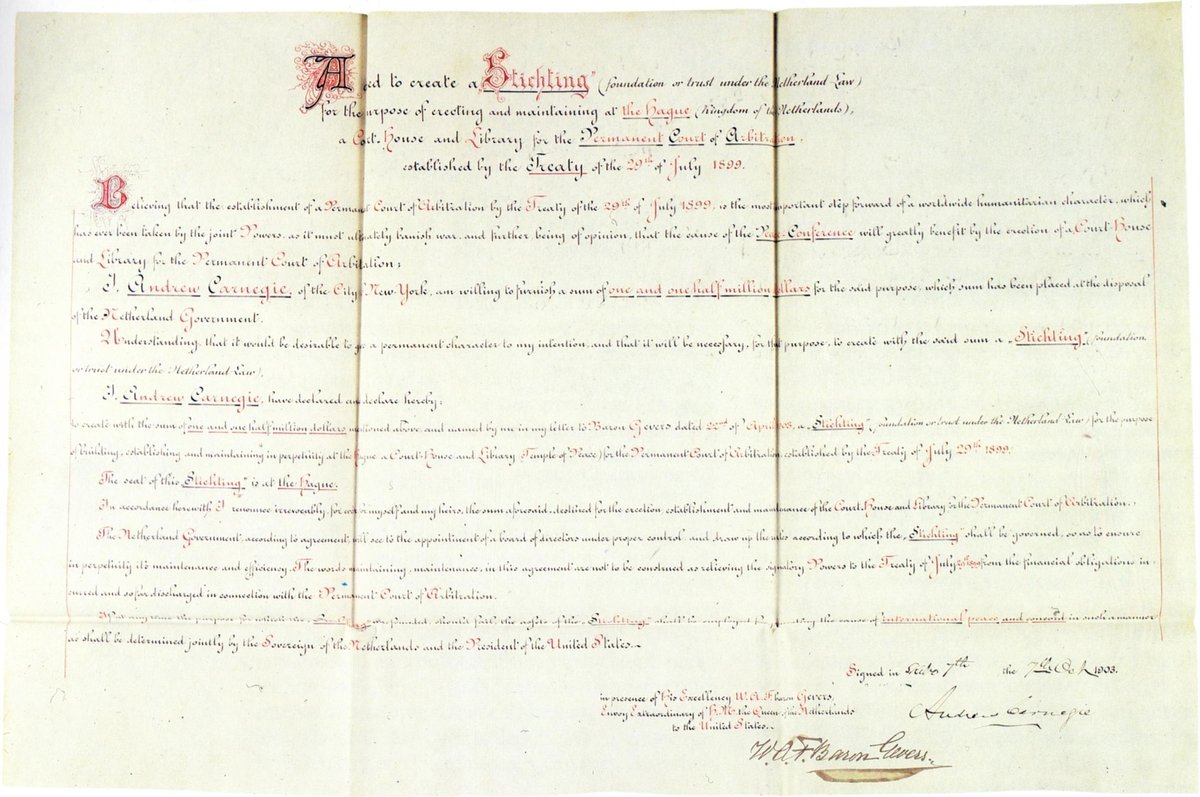 Deed to create a „Stichting" (foundation or trust under the Netherland Law)
for the purpose of erecting and maintaining at the Hague (Kingdom of the Netherlands),
a Court-House and Library for the Permanent Court of Arbitration,
established by the Treaty of the 29th of July 1899.
Believing that the establishment of a Permanent Court of Arbitration by the Treaty of the 29th of July 1899, is the most important step forward of a worldwide humanitarian character, which
has ever been taken by the joint Powers, as it must ultimately banish war, and further, being of opinion, that the cause of the Peace Conference will greatly benefit by the erection of a Court-House
and Library for the Permanent Court of Arbitration;
I, Andrew Carnegie, of the City of New York, am willing to furnish a sum of one and one half million dollars for the said purpose, which sum has been placed at the disposal
of the Netherland Government.
Understanding, that it would be desirable to give a permanent character to my intention, and that it will be necessary, for that purpose, to create with the said sum a „Stichting" (foundation
or trust under the Netherland Law),
I, Andrew Carnegie, have declared and declare hereby:
to create with the sum of one and one half million dollars mentioned above, and named by me in my letter to Baron Gevers dated 22nd of April 1903, a „Stichting" (foundation or trust under the Netherland Law) for the purpose
of building, establishing and maintaining in perpetuity at the Hague a Court-House and Library (Temple of Peace) for the Permanent Court of Arbitration established by the Treaty of July 29th 1899.
The seat of this „Stichting" is at the Hague.
In accordance herewith I renounce irrevocably, for ever for myself and my heirs, the sum aforesaid, destined for the erection, establishment and maintenance of the Court-House and Library for the Permanent Court of Arbitration.
The Netherland Government, according to agreement, will see to the appointment of a board of directors under proper control and draw up the rules according to which the „Stichting" shall be governed, so as to ensure
in perpetuity its maintenance and efficiency. The words maintaining, maintenance, in this agreement are not to be construed as relieving the signatory Powers to the Treaty of July 29th 1899 from the financial obligations in-
curred and so far discharged in connection with the Permanent Court of Arbitration.
If at any time the purpose for which the „Stichting" was founded, should fail, the assets of the „Stichting" shall be employed for promoting the cause of international peace and concord in such a manner
as shall be determined jointly by the Sovereign of the Netherlands and the President of the United States.
Signed in 7th the 7th Oct 1903.
in presence of His Excellency W. A. F. baron Gevers,
Envoy Extraordinary of H. M. the Queen of the Netherlands
to the United States.
Andrew Carnegie
W. A. F. Baron Gevers.